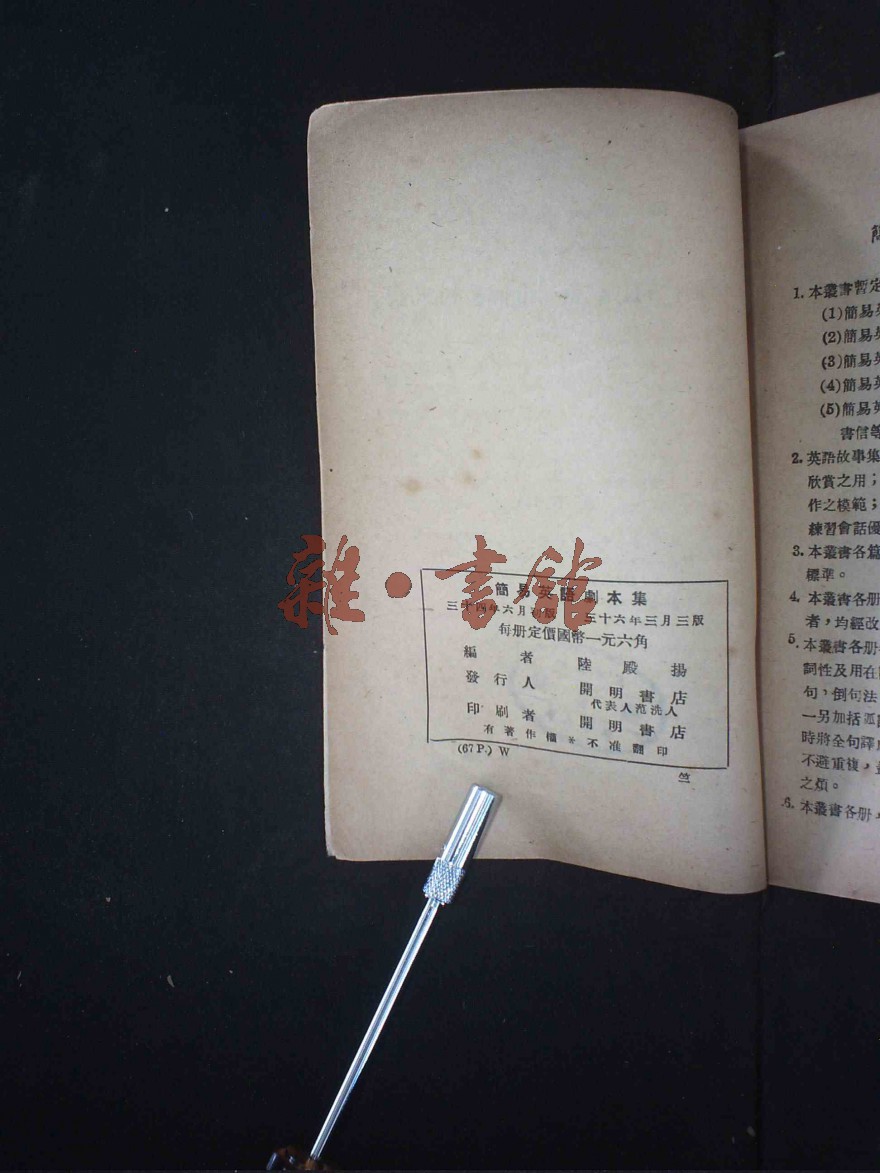 簡易英語劇本集
三十四年六月初版 三十六年三月三版
每册定價國幣一元六角
編者 陸殿揚
發行人 開明書店
代表人范洗人
印刷者 開明書店
有著作權※不准翻印
(67 P.) W
竺
雜·書館
簡
1. 本叢書暫定
(1)簡易英
(2)簡易英
(3)簡易英
(4)簡易英
(5)簡易英
書信等
2. 英語故事集
欣賞之用；
作之模範；
練習會話優
3. 本叢書各篇
標準。
4. 本叢書各册
者，均經改
5. 本叢書各册
詞性及用在
句，倒句法
一另加括弧
時將全句譯
不避重複，
之煩。
6. 本叢書各册